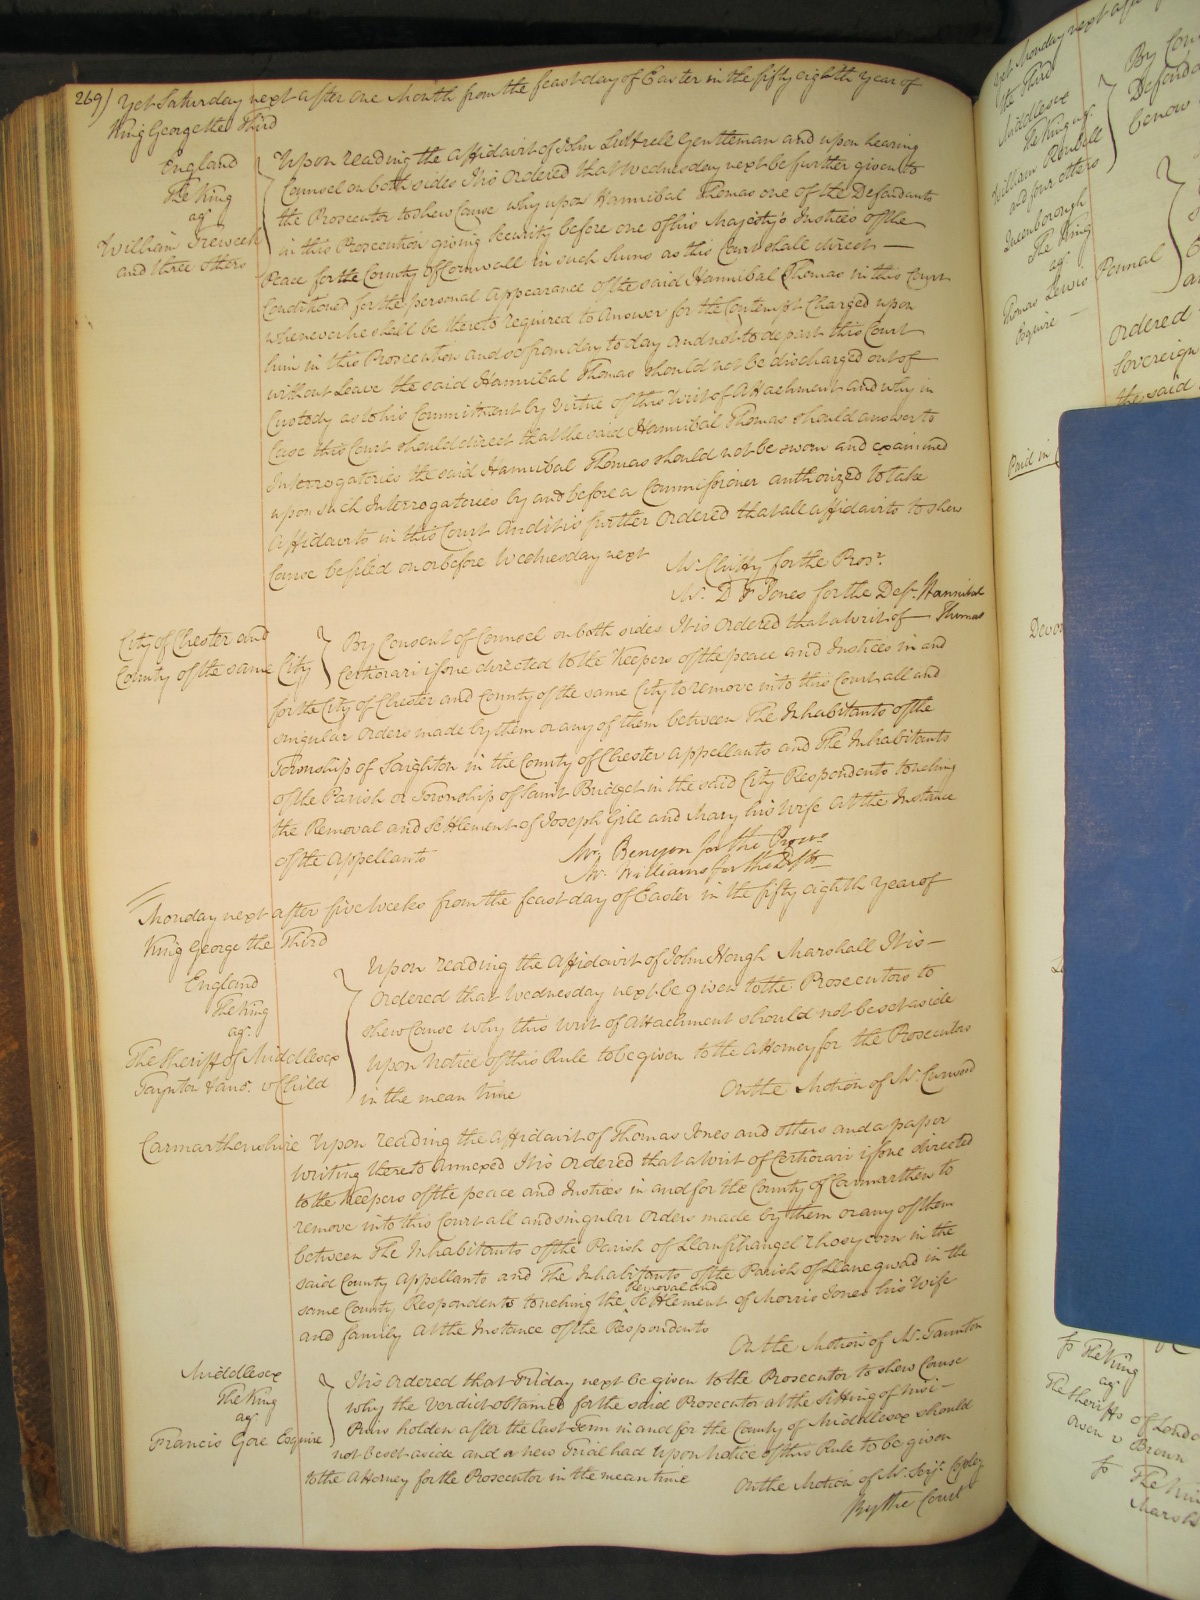 269) Yet Saturday next after one Month from the feast day of Easter in the fifty eighth Year of
King George the Third
England
The King
agt
William
and three others
Upon reading the Affidavit of John Luttrell Gentleman and upon hearing
Counsel on both sides It is Ordered that Wednesday next be further given to
the Prosecutor to shew Cause why upon Hannibal Thomas one of the Defendants
in this Prosecution giving Security before one of his Majesty's Justices of the
Peace for the County of Cornwall in such Sums as this Court shall direct —
Conditioned for the personal Appearance of the said Hannibal Thomas in this Court
whenever he shall be thereto required to Answer for the Contempt Charged upon
him in this Prosecution and so from day to day and not to depart this Court
without Leave the said Hannibal Thomas should not be discharged out of
Custody as to his Commitment by virtue of this Writ of Attachment and why in
Case this Court should direct that the said Hannibal Thomas should answer to
Interrogatories the said Hannibal Thomas should not be sworn and examined
upon such Interrogatories by and before a Commissioner authorized to take
Affidavits in this Court And it is further Ordered that all affidavits to shew
Cause be filed on or before Wednesday next
Mr. Chitty for the Prosr.
Mr. D F Jones for the Deft. Hannibal
Thomas
City of Chester and
County of the same City
By Consent of Counsel on both sides It is Ordered that a Writ of —
Certiorari issue directed to the Keepers of the peace and Justices in and
for the City of Chester and County of the same City to remove into this Court all and
singular Orders made by them or any of them between The Inhabitants of the
Township of Saighton in the County of Chester Appellants and The Inhabitants
of the Parish or Township of Saint Bridget in the said City Respondents touching
the Removal and Settlement of Joseph Gile and Mary his Wife At the Instance
of the Appellants
Mr. Benyon for the Prosrs
Mr. Williams for the Defts
Monday next after five Weeks from the feast day of Easter in the fifty eighth Year of
King George the Third
England
The King
agt.
The Sheriff of Middlesex
Taynton & anor. v Child
Upon reading the Affidavit of John Hough Marshall It is —
Ordered that Wednesday next be given to the Prosecutors to
shew Cause why this Writ of Attachment should not be set aside
Upon Notice of this Rule to be given to the Attorney for the Prosecutors
in the mean time
On the Motion of Mr. Curwood
Carmarthenshire Upon reading the Affidavit of Thomas Jones and others and a paper
Writing thereto Annexed It is Ordered that a Writ of Certiorari issue directed
to the Keepers of the peace and Justices in and for the County of Carmarthen to
remove into this Court all and singular Orders made by them or any of them
between The Inhabitants of the Parish of Llanfihangel Rhosycorn in the
said County Appellants and The Inhabitants of the Parish of Llanegwad in the
same County Respondents touching the Removal and Settlement of Morris Jones his Wife
and family At the Instance of the Respondents
On the Motion of Mr. Taunton
Middlesex
The King
agt
Francis Gore Esquire
It is Ordered that Friday next be given to the Prosecutor to shew Cause
why the Verdict obtained for the said Prosecutor at the Sitting of Nisi —
Prius holden after the Last Term in and for the County of Middlesex should
not be set aside and a new Trial had Upon Notice of this Rule to be given
to the Attorney for the Prosecutor in the mean time
On the Motion of Mr. Serjt. Copley
By the Court
the Third
Middlesex
The King agt.
William
and four others
Queenborough
The King
agt
Thomas Lewis Pennal
Esquire —
By Con
Defenda
Ordered
Sovereign
the said
Paid in
Devon
The King
agt
The Sheriffs of London
Owen v Brown